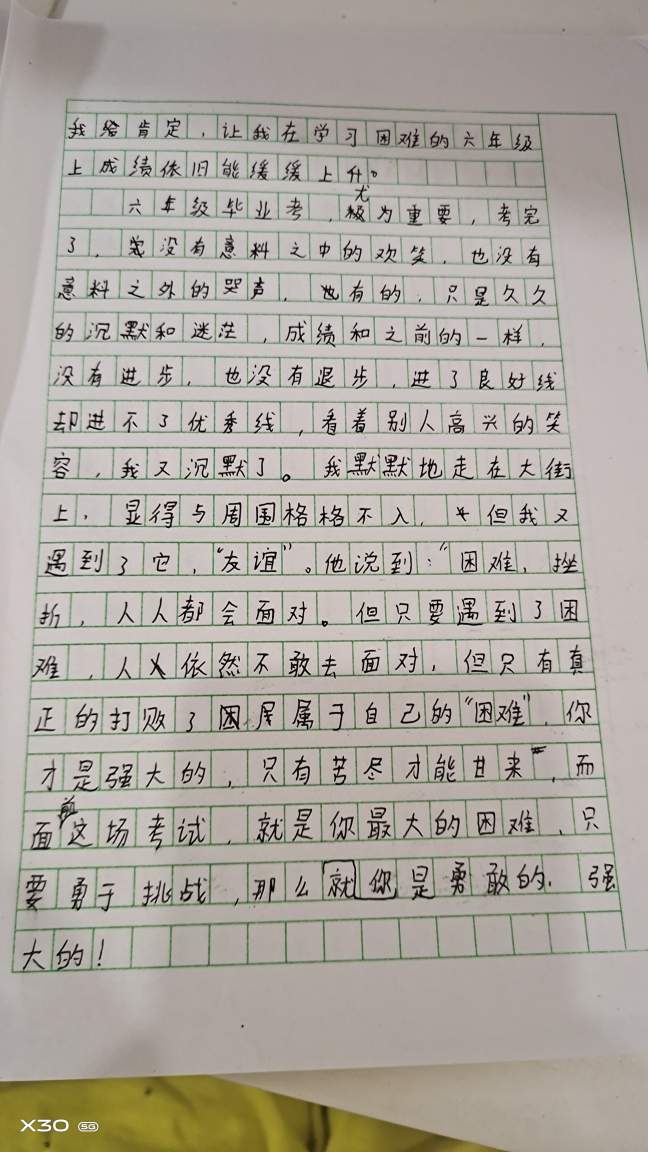 我给肯定，让我在学习困难的六年级
上成绩依旧能缓缓上升。
六年级毕业考，尤为重要，考完
了，我没有意料之中的欢笑，也没有
意料之外的哭声，也有的，只是久久
的沉默和迷茫，成绩和之前的一样，
没有进步，也没有退步，进了良好线
却进不了优秀线，看着别人高兴的笑
容，我又沉默了。我默默地走在大街
上，显得与周围格格不入，但我又
遇到了它，“友谊”。他说到：“困难，挫
折，人人都会面对。但只要遇到了困
难，人人依然不敢去面对，但只有真
正的打败了属于自己的“困难”，你
才是强大的，只有苦尽才能甘来”，而
面前这场考试，就是你最大的困难，只
要勇于挑战，那么就你是勇敢的，强
大的！
X30 5G